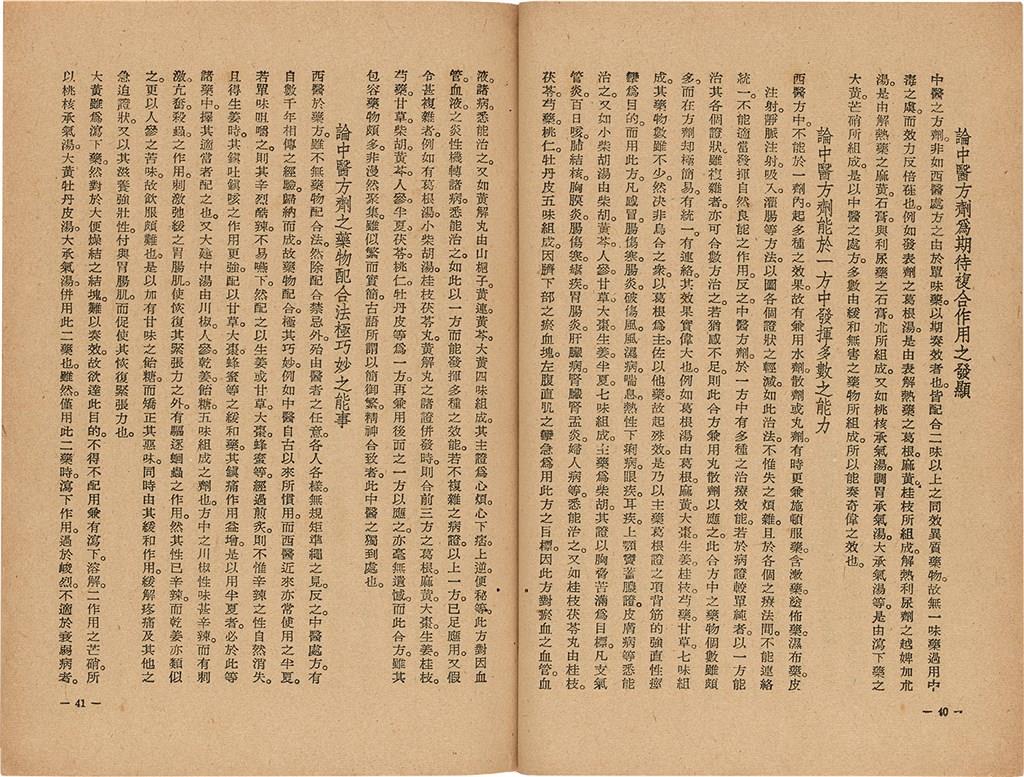 論中醫方劑爲期待複合作用之發顯
中醫之方劑。非如西醫處方之由於單味藥。以期奏效者也。皆配合二味以上之同效異質藥物。故無一味藥過用中
毒之虞。而效力反倍蓰也。例如發表劑之葛根湯。是由表解熱藥之葛根。麻黃。桂枝所組成。解熱利尿劑之越婢加朮
湯。是由解熱藥之麻黃。石膏。與利尿藥之石膏。朮所組成。又如桃核承氣湯。調胃承氣湯。大承氣湯等。是由瀉下藥之
大黃芒硝所組成。是以中醫之處方。多數由緩和無害之藥物所組成。所以能奏奇偉之效也。
論中醫方劑能於一方中發揮多數之能力
西醫方中。不能於一劑內起多種之效果。故有兼用水劑散劑或丸劑。有時更兼施頓服藥。含漱藥。塗佈藥。濕布藥。皮
注射。靜脈注射。吸入。灌腸等方法。以圖各個證狀之輕減。如此治法。不惟失之煩雜。且於各個之療法間。不能連絡
統一。不能適當發揮自然良能之作用。反之中醫方劑。於一方中有多種之治療效能。若於病證較單純者。以一方能
治其各個證狀。雖複雜者。亦可合數方治之。若猶感不足。則此合方兼用丸散劑以應之。此合方中之藥物個數雖頗
多。而在方劑却極簡易。有統一。有連絡。其效果實偉大也。例如葛根湯由葛根。麻黃。大棗。生姜。桂枝。芍藥。甘草七味組
成。其藥物數雖不少。然决非烏合之衆。以葛根爲主。佐以他藥。故起殊效。是乃以主藥葛根證之項背筋的强直性痙
攣爲目的而用此方。凡感冒。腸傷寒。腸炎。破傷風。風濕病。喘息。熱性下痢病。眼疾。耳疾。上顎竇蓄膿證。皮膚病等。悉能
治之。又如小柴胡湯由柴胡。黃芩。人參。甘草。大棗。生姜。半夏。七味組成。主藥爲柴胡。其證以胸脅苦滿爲目標。凡支氣
管炎。百日咳。肺結核。胸膜炎。腸傷寒。瘰癧。疾胃腸炎。肝臟病。腎臟腎盂炎。婦人病等。悉能治之。又如桂枝茯苓丸由桂枝。
茯苓。芍藥。桃仁。牡丹皮五味組成。因臍下部之瘀血塊。左腹直肌之攣急。爲用此方之目標。因此方對瘀血之血管。血
— 40 —
液。諸病悉能治之。又如黃解丸由山梔子。黃連。黃芩。大黃四味組成。其主證爲心煩。心下痞。上逆。便秘等。此方對因血
管血液之炎性機轉諸病。悉能治之。如此以一方而能發揮多種之效能。若不複雜之病證。以上一方已足應用。又假
令甚複雜者。例如有葛根湯。小柴胡湯。桂枝茯苓丸。黃解丸之諸證併發時。則合前三方之葛根。麻黃。大棗。生姜。桂枝。
芍藥。甘草。柴胡。黃芩。人參。半夏。茯苓。桃仁。牡丹皮等爲一方。再兼用後面之一方以應之。亦毫無遺憾。而此合方雖其
包容藥物頗多。非漫然聚集。雖似繁而實簡。古語所謂以簡御繁。精神合致者。此中醫之獨到處也。
論中醫方劑之藥物配合法極巧妙之能事
西醫於藥方。雖不無藥物配合法。然除配合禁忌外。殆由醫者之任意。各人各樣。無規矩準繩之見。反之中醫處方。有
自數千年相傳之經驗。歸納而成。故藥物配合極其巧妙。例如中醫自古以來所慣用。而西醫近來亦常使用之半夏。
若單味咀嚼之。則其辛烈酷辣。不易嚥下。然配之以生姜或甘草。大棗。蜂蜜等。經過煎炙。則不惟辛辣之性自然消失。
且得生姜時。其鎭吐鎭咳之作用更强。配以甘草。大棗。蜂蜜等之緩和藥。其鎭痛作用益增。是以用半夏者。必於此等
諸藥中。擇其適當者配之也。又大建中湯由川椒。人參。乾姜。飴糖。五味組成之劑也。方中之川椒性味甚辛辣。而有刺
激。亢奮。殺蟲之作用。刺激弛緩之胃腸肌。使恢復其緊張力之外。有驅逐蛔蟲之作用。然其性已辛辣。而乾姜亦類似
之。更以人參之苦味。故飲服頗難也。是以加有甘味之飴糖。而矯正其惡味。同時由其緩和作用。緩解疼痛及其他之
急迫證狀。又以其滋養强壯性。付與胃腸肌。而促使其恢復緊張力也。
大黃雖爲瀉下藥。然對於大便燥結之結塊。難以奏效。故欲達此目的。不得不配用兼有瀉下。溶解二作用之芒硝。所
以桃核承氣湯。大黃牡丹皮湯。大承氣湯。併用此二藥也。雖然。僅用此二藥時。瀉下作用。過於峻烈。不適於衰弱病者。
— 41 —